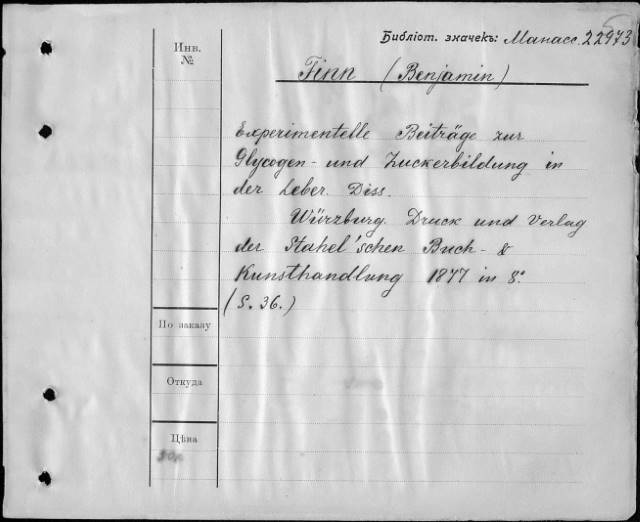 Библіот. значекъ: Манасс. 22973
Инв.
№
Finn (Benjamin)
Experimentelle Beiträge zur
Glycogen- und Zuckerbildung in
der Leber. Diss.
Würzburg. Druck und Verlag
der Stahel'schen Buch- &
Kunsthandlung 1877 in 8º
(S. 36.)
По заказу
Откуда
Цѣна